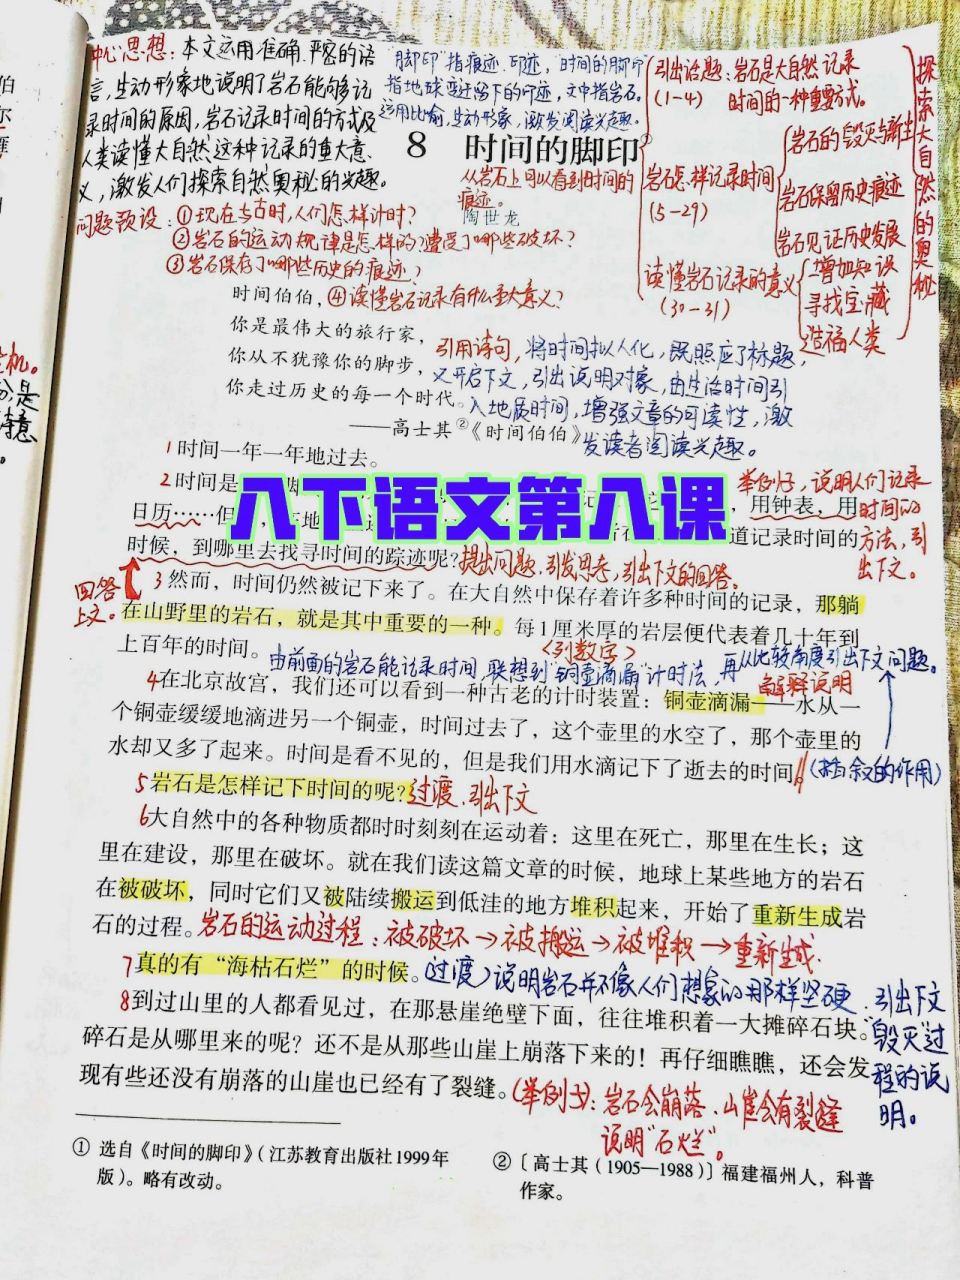 中心思想：本文运用准确、严密的语
言，生动形象地说明了岩石能够记
录时间的原因，岩石记录时间的方式及
人类读懂大自然这种记录的重大意
义，激发人们探索自然奥秘的兴趣。
"脚印"指痕迹、印迹，"时间的脚印"
指地球变迁留下的印迹，文中指岩石。
运用比喻，生动形象，激发阅读兴趣。
引出话题：岩石是大自然记录
(1-4) 时间的一种重要方式。
岩石怎样记录时间
(5-29)
岩石的毁灭与新生
岩石保留历史痕迹
岩石见证历史发展
读懂岩石记录的意义
(30-31)
增加知识
寻找宝藏
造福人类
探索大自然的奥秘
8 时间的脚印①
从岩石上可以看到旧时间的
痕迹。
陶世龙
问题预设：①现在与古时，人们怎样计时？
②岩石的运动规律是怎样的？遭受了哪些破坏？
③岩石保存了哪些历史的痕迹？
④读懂岩石记录有什么重大意义？
时间伯伯，
你是最伟大的旅行家，
你从不犹豫你的脚步，
你走过历史的每一个时代。
——高士其②《时间伯伯》
引用诗句，将时间拟人化，既照应了标题，
又开启下文，引出说明对象，由生活时间引
入地质时间，增强文章的可读性，激
发读者阅读兴趣。
1时间一年一年地过去。
2时间是
，用钟表，用
日历……但
道记录时间的
时候，到哪里去找寻时间的踪迹呢？
举例子，说明人们记录
时间的
方法，引
出下文。
八下语文第八课
提出问题，引发思考，引出下文的回答。
回答
上文。
3然而，时间仍然被记下来了。在大自然中保存着许多种时间的记录，那躺
在山野里的岩石，就是其中重要的一种。每1厘米厚的岩层便代表着几十年到
上百年的时间。
<列数字>
由前面的岩石能记录时间，联想到"铜壶滴漏"计时法，再从比较角度引出下文问题。
解释说明
4在北京故宫，我们还可以看到一种古老的计时装置：铜壶滴漏——水从一
个铜壶缓缓地滴进另一个铜壶，时间过去了，这个壶里的水空了，那个壶里的
水却又多了起来。时间是看不见的，但是我们用水滴记下了逝去的时间。
(插叙的作用)
5岩石是怎样记下时间的呢？过渡、引出下文
6大自然中的各种物质都时时刻刻在运动着：这里在死亡，那里在生长；这
里在建设，那里在破坏。就在我们读这篇文章的时候，地球上某些地方的岩石
在被破坏，同时它们又被陆续搬运到低洼的地方堆积起来，开始了重新生成岩
石的过程。岩石的运动过程：被破坏→被搬运→被堆积→重新生成.
7真的有"海枯石烂"的时候。(过渡)说明岩石并不像人们想象的那样坚硬，引出下文
"毁灭过
程的说
明。
8到过山里的人都看见过，在那悬崖绝壁下面，往往堆积着一大摊碎石块。
碎石是从哪里来的呢？还不是从那些山崖上崩落下来的！再仔细瞧瞧，还会发
现有些还没有崩落的山崖也已经有了裂缝。
(举例子)：岩石会崩落、山崖会有裂缝
说明"石烂"。
① 选自《时间的脚印》（江苏教育出版社1999年
版）。略有改动。
② 〔高士其（1905—1988）〕福建福州人，科普
作家。